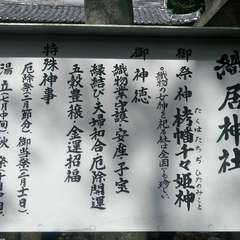 織居神社
御祭神 栲幡千々姫神
たくはたちぢひめのみこと
織物の女神を祀る社は全国でも珍しい。
御神徳
織物業守護・安産・子宝
縁結び・夫婦和合厄除開運
五穀豊穣 金運招福
特殊神事
厄除祭(二月節分)御当祭(二月十一日)
湯立(七月中旬)秋祭(十月